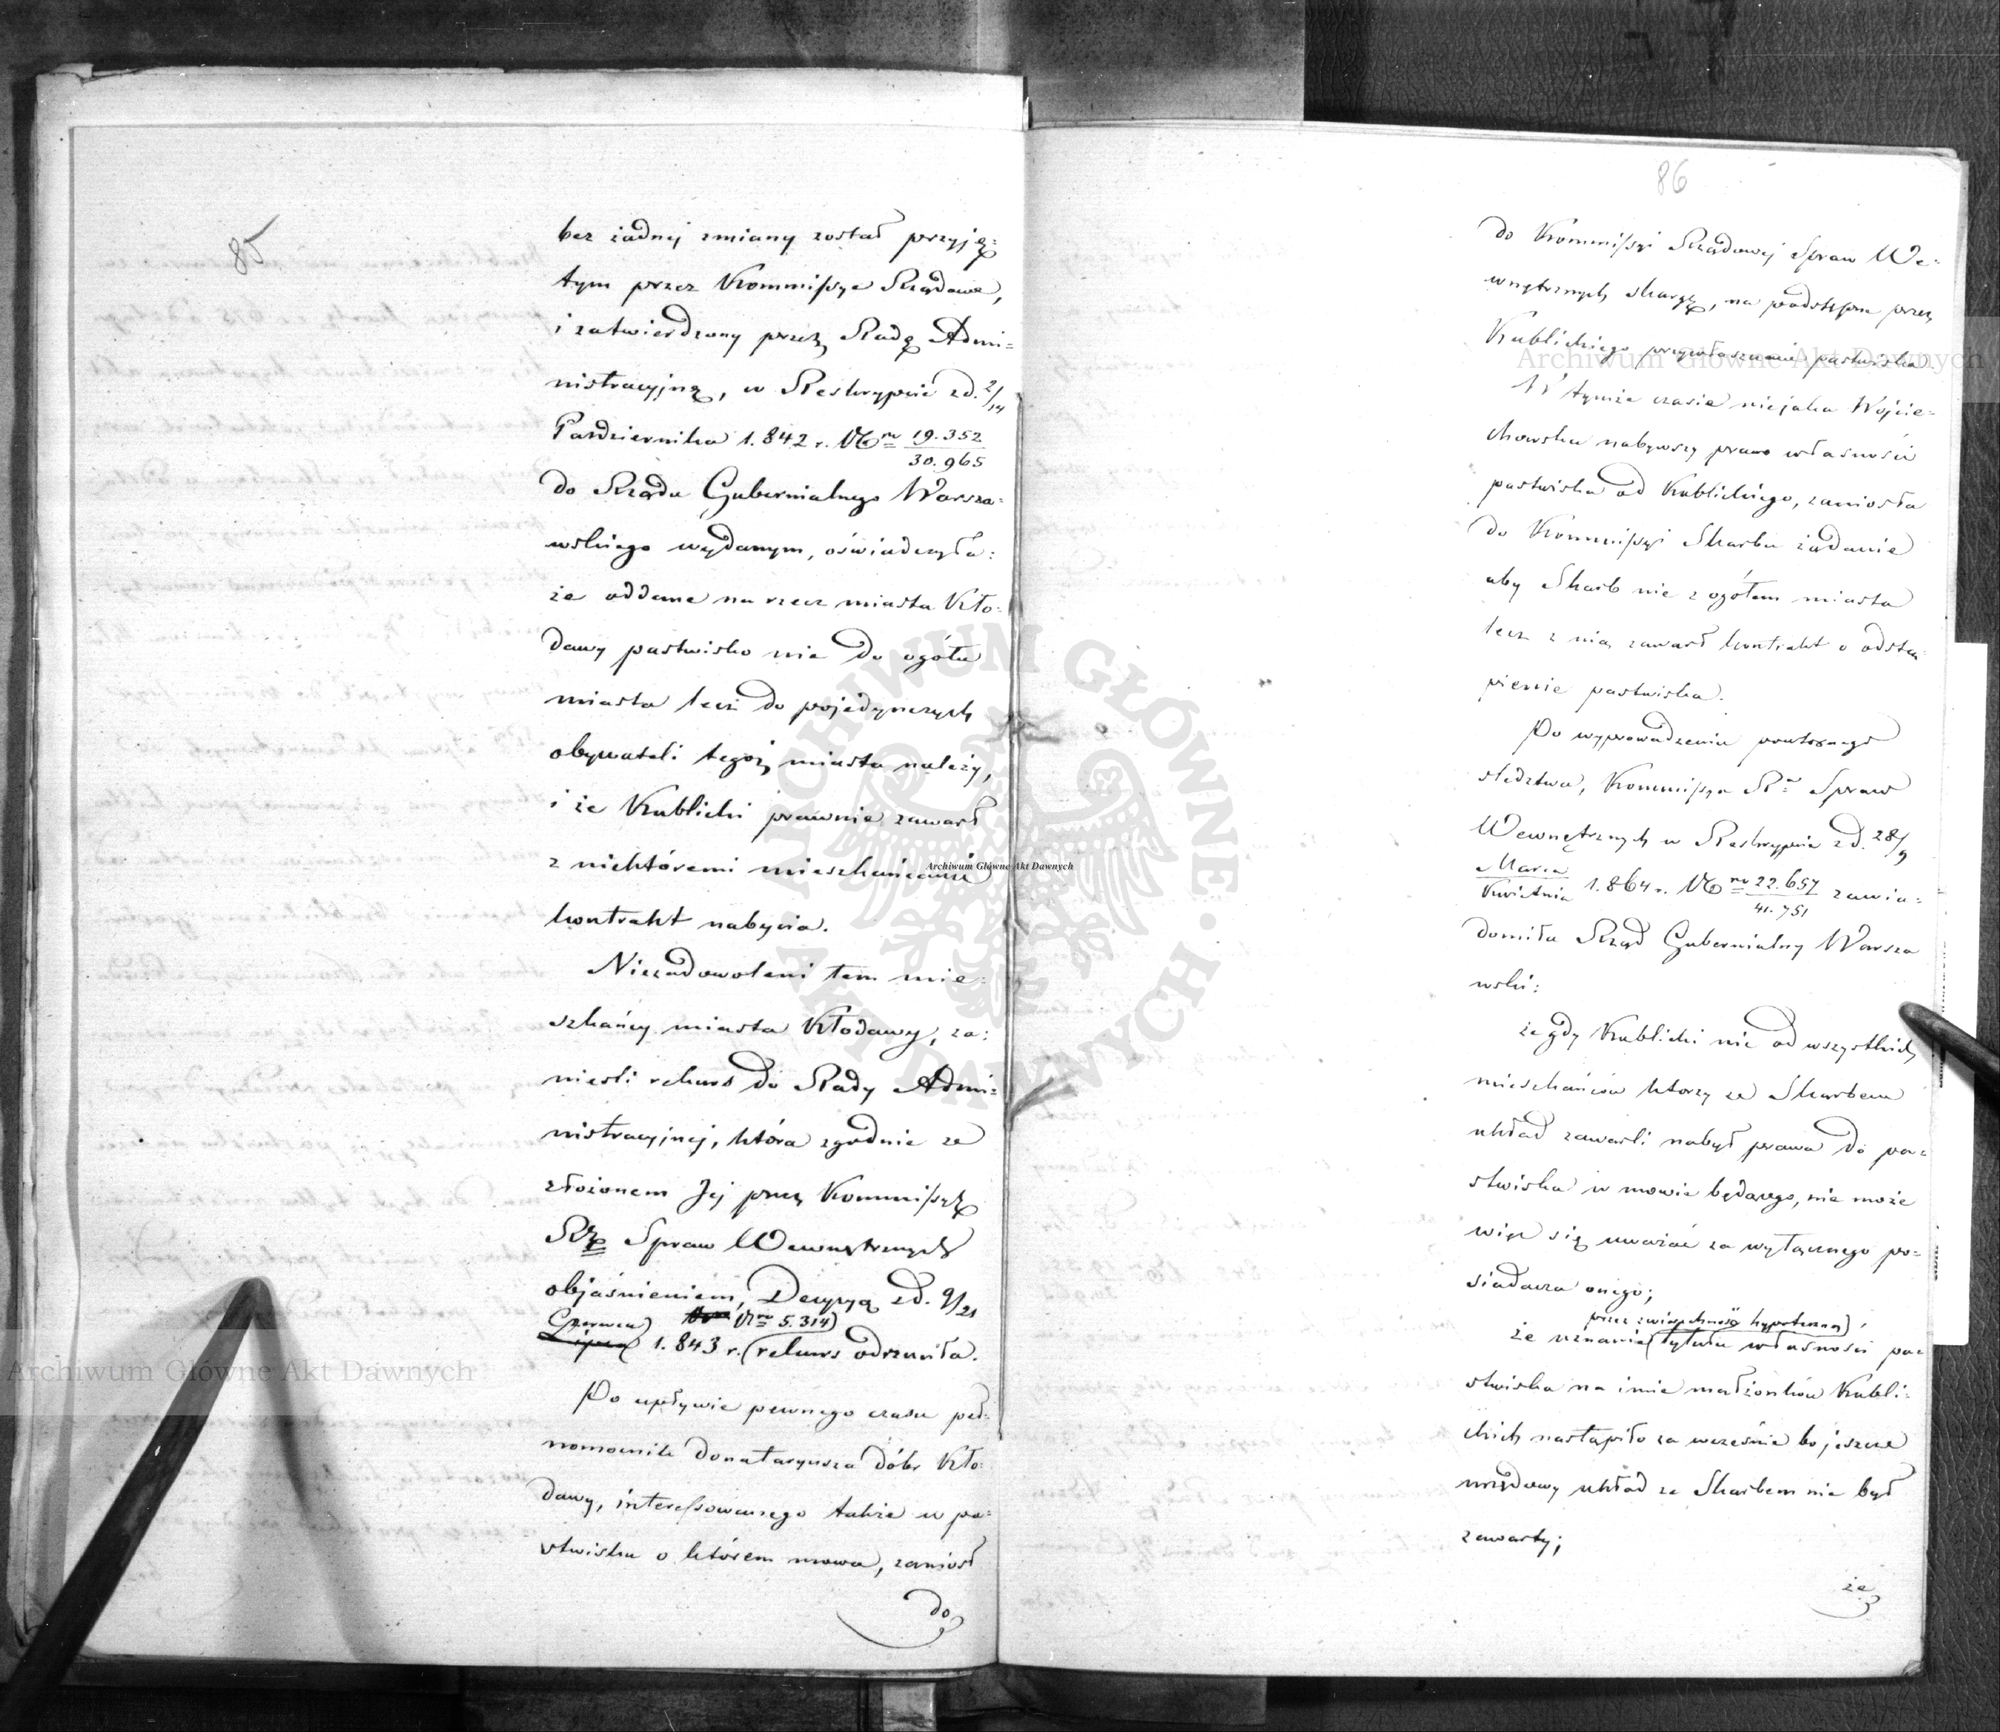 85
bez żadnej zmiany został przyję=
tym przez Kommissye Rządowe,
i zatwierdzony przez Radę Admi=
nistracyjną, w Reskrypcie z d. 2/14
Października 1.842 r. Nro 19.352/30.965
do Rządu Gubernialnego Warsza=
wskiego wydanym, oświadczyła:
że oddane na rzecz miasta Kło=
dawy pastwisko nie do ogółu
miasta lecz do pojedynczych
obywateli tegoż miasta należy,
i że Kublicki prawnie zawarł
z niektóremi mieszkańcami
kontrakt nabycia.
Niezadowoleni tem mie=
szkańcy miasta Kłodawy, za=
nieśli rekurs do Rady Admi=
nistracyjnej, która zgodnie ze
złożonem Jej przez Kommissyę
Rzą Spraw Wewnętrznych
objaśnieniem, Decyzyą z d. 9/21
Czerwca (Nro 5.314)
Lipca 1.843 r. rekurs odrzuciła.
Po upływie pewnego czasu peł=
nomocnik donataryusza dóbr Kło=
dawy, interessowanego także w pa=
stwisku o którem mowa, zaniósł
do
86
do Kommissyi Rządowej Spraw We=
wnętrznych skargę, na podstępne przez
Kublickiego przywłaszczenie pastwiska.
W tymże czasie niejaka Wojcie=
chowska nabywszy prawo własności
pastwiska od Kublickiego, zaniosła
do Kommissyi Skarbu żądanie
aby Skarb nie z ogółem miasta
lecz z nią zawarł kontrakt o odstą=
pienie pastwiska.
Po wyprowadzeniu powtórnego
śledztwa, Kommissya Ra Spraw
Wewnętrznych w Reskrypcie z d. 28/9
Marca/Kwietnia 1.864 r. Nro 22.657/41.751 zawia=
domiła Rząd Gubernialny Warsza
wski:
że gdy Kublicki nie od wszystkich
mieszkańców którzy ze Skarbem
układ zawarli nabył prawa do pa=
stwiska w mowie będącego, nie może
więc się uważać za wyłącznego po=
siadacza onego;
przez zwierzchność hypoteczną
że uznanie tytułu własności pa=
stwiska na imie małżonków Kubli=
ckich nastąpiło za wcześnie bo jeszcze
urzędowy układ ze Skarbem nie był
zawarty;
że
Archiwum Główne Akt Dawnych
Archiwum Główne Akt Dawnych
Archiwum Główne Akt Dawnych
ARCHIWUM GŁÓWNE AKT DAWNYCH